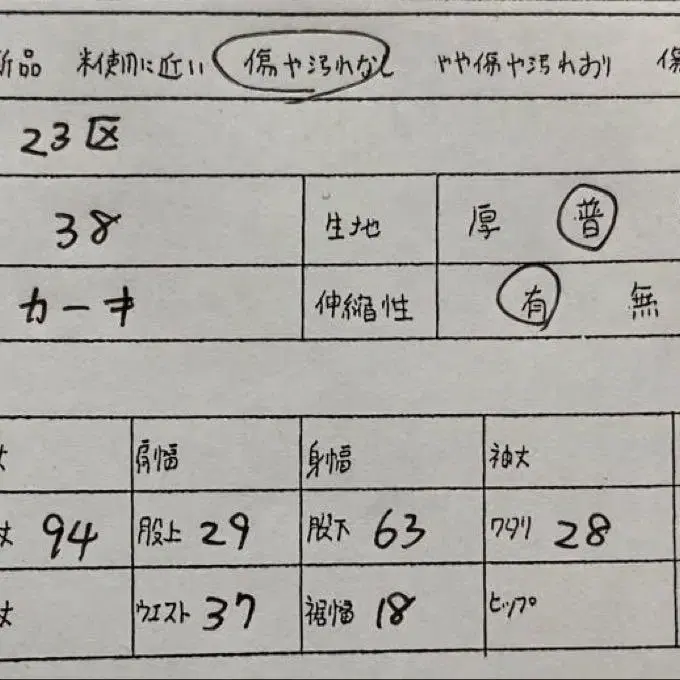 新品 未使用に近い 傷や汚れなし やや傷や汚れあり 傷
23区
38 生地 厚 普
カーキ 伸縮性 有 無
丈 肩幅 身幅 袖丈
丈 94 股上 29 股下 63 ワタリ 28
丈 ウエスト 37 裾幅 18 ヒップ